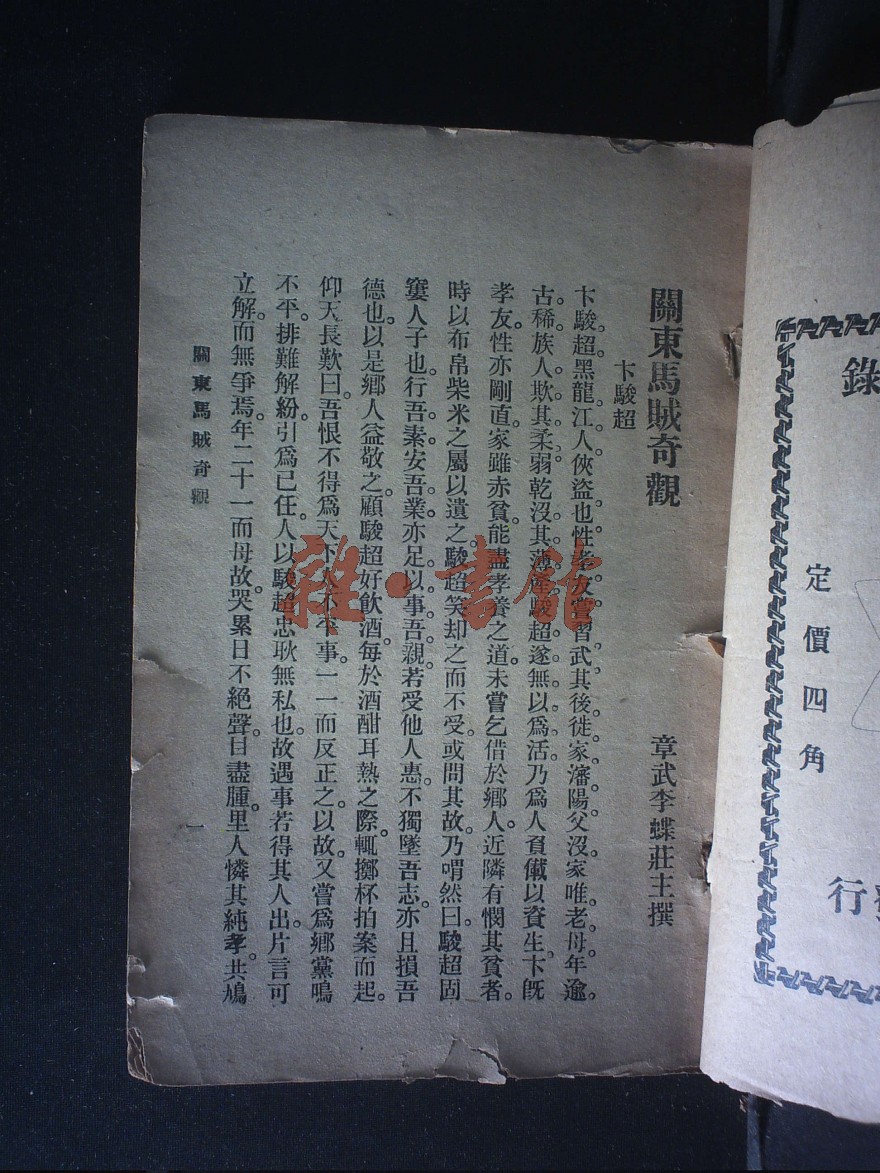 關東馬賊奇觀
章武李蝶莊主撰
卞駿超
卞駿超。黑龍江人。俠盜也。性孝友。嘗習武。其後徙家瀋陽。父沒。家唯老母。年逾
古稀。族人欺其柔弱。乾沒其薄產。駿超遂無以爲活。乃爲人貧儎以資生。卞旣
孝友。性亦剛直。家雖赤貧。能盡孝養之道。未嘗乞借於鄉人。近隣有憫其貧者。
時以布帛柴米之屬以遺之。駿超笑却之而不受。或問其故。乃喟然曰。駿超固
窶人子也。行吾素。安吾業。亦足以事吾親。若受他人惠。不獨墜吾志。亦且損吾
德也。以是鄉人益敬之。顧駿超好飲酒。每於酒酣耳熱之際。輒擲杯拍案而起。
仰天長歎曰。吾恨不得爲天下人不平事。一一而反正之。以故又嘗爲鄉黨鳴
不平。排難解紛。引爲已任。人以駿超忠耿無私也。故遇事若得其人出片言。可
立解而無爭焉。年二十一而母故。哭累日不絕聲。目盡腫。里人憐其純孝。共鳩
關東馬賊奇觀
一
雜·書館
錄
定價四角
行